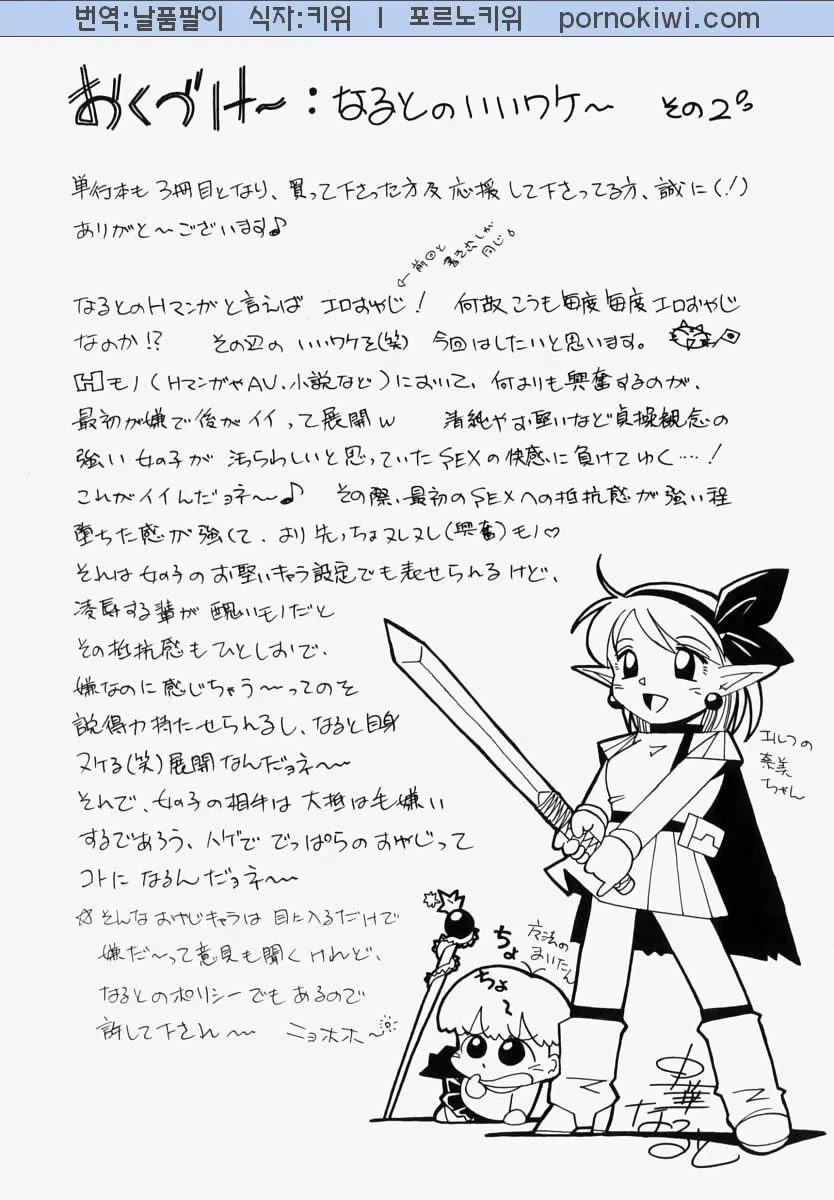 번역:날품팔이 식자:키위 | 포르노키위 pornokiwi.com
おくづけ〜：なるとのいいワケ〜 その2
単行本も3冊目となり、買って下さった方及応援して下さってる方、誠に(!)
ありがと〜ございます♪
←前回と書き出しが同じ。
なるとのHマンガと言えばエロおやじ! 何故こうも毎度毎度エロおやじ
なのか!? その辺のいいワケを(笑)今回はしたいと思います。
Hモノ(HマンガやAV、小説など)において、何よりも興奮するのが、
最初が嫌で後がイイって展開w 清純やお堅いなど貞操観念の
強い女の子が汚らわしいと思っていたSEXの快感に負けてゆく…!
これがイイんだョネ〜♪ その際、最初のSEXへの抵抗感が強い程
堕ちた感が強くて、より先っちょヌレヌレ(興奮)モノ♡
それは女の子のお堅いキャラ設定でも表せられるけど、
凌辱する輩が醜いモノだと
その抵抗感もひとしおで、
嫌なのに感じちゃう〜ってのを
説得力持たせられるし、なると自身
ヌケる(笑)展開なんだョネ〜
それで、女の子の相手は大抵は毛嫌い
するであろう、ハゲででっぱらのおやじって
コトになるんだョネ〜
☆そんなおやじキャラは目に入るだけで
嫌だ〜って意見も聞くけれど、
なるとのポリシーでもあるので
許して下され〜 ニョホホ〜
エルフの
奈美
ちゃん
ちょ
ちょ
〜
魔法の
まいたん